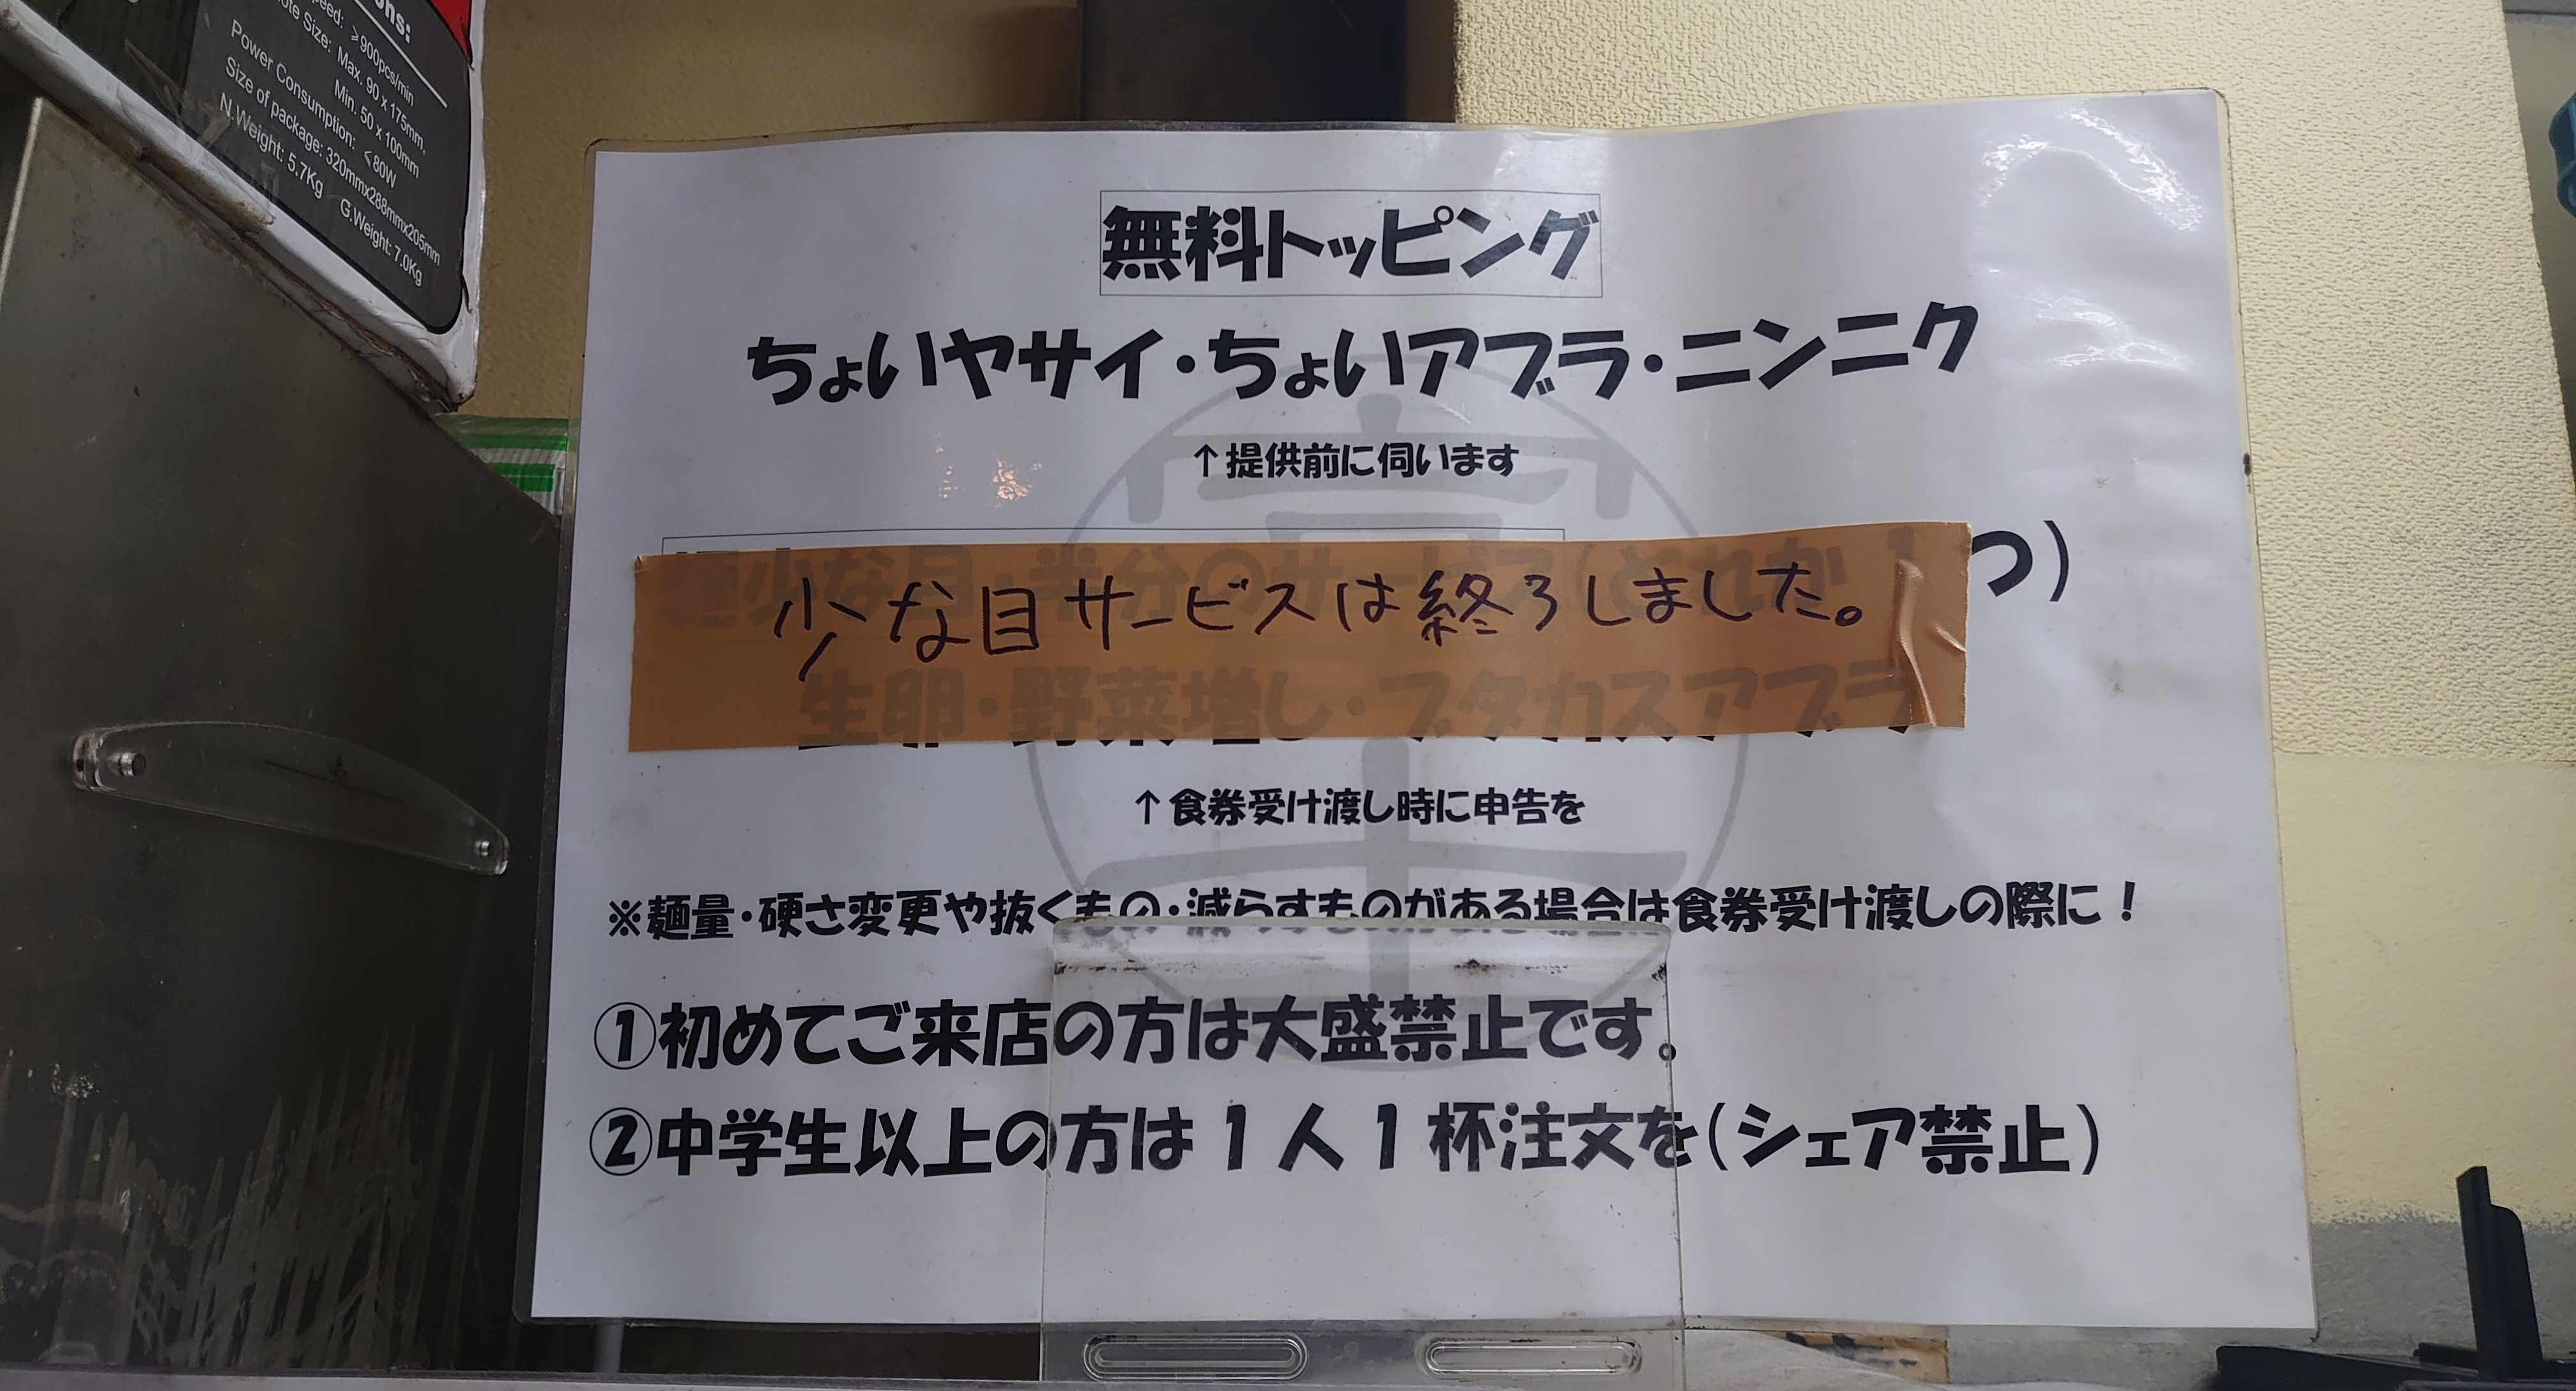 ons:
Speed: ≥900pcs/min
Note Size: Max. 90 x 175mm,
Min. 50 x 100mm
Power Consumption: <80W
Size of package: 320mmx288mmx205mm
N.Weight: 5.7Kg G.Weight: 7.0Kg
無料トッピング
ちょいヤサイ・ちょいアブラ・ニンニク
↑提供前に伺います
麺少な目・半分のサービス(どれか1つ)
少な目サービスは終了しました。
生卵・野菜増し・ブタカスアブラ
↑食券受け渡し時に申告を
※麺量・硬さ変更や抜くもの・減らすものがある場合は食券受け渡しの際に！
①初めてご来店の方は大盛禁止です。
②中学生以上の方は1人1杯注文を(シェア禁止)